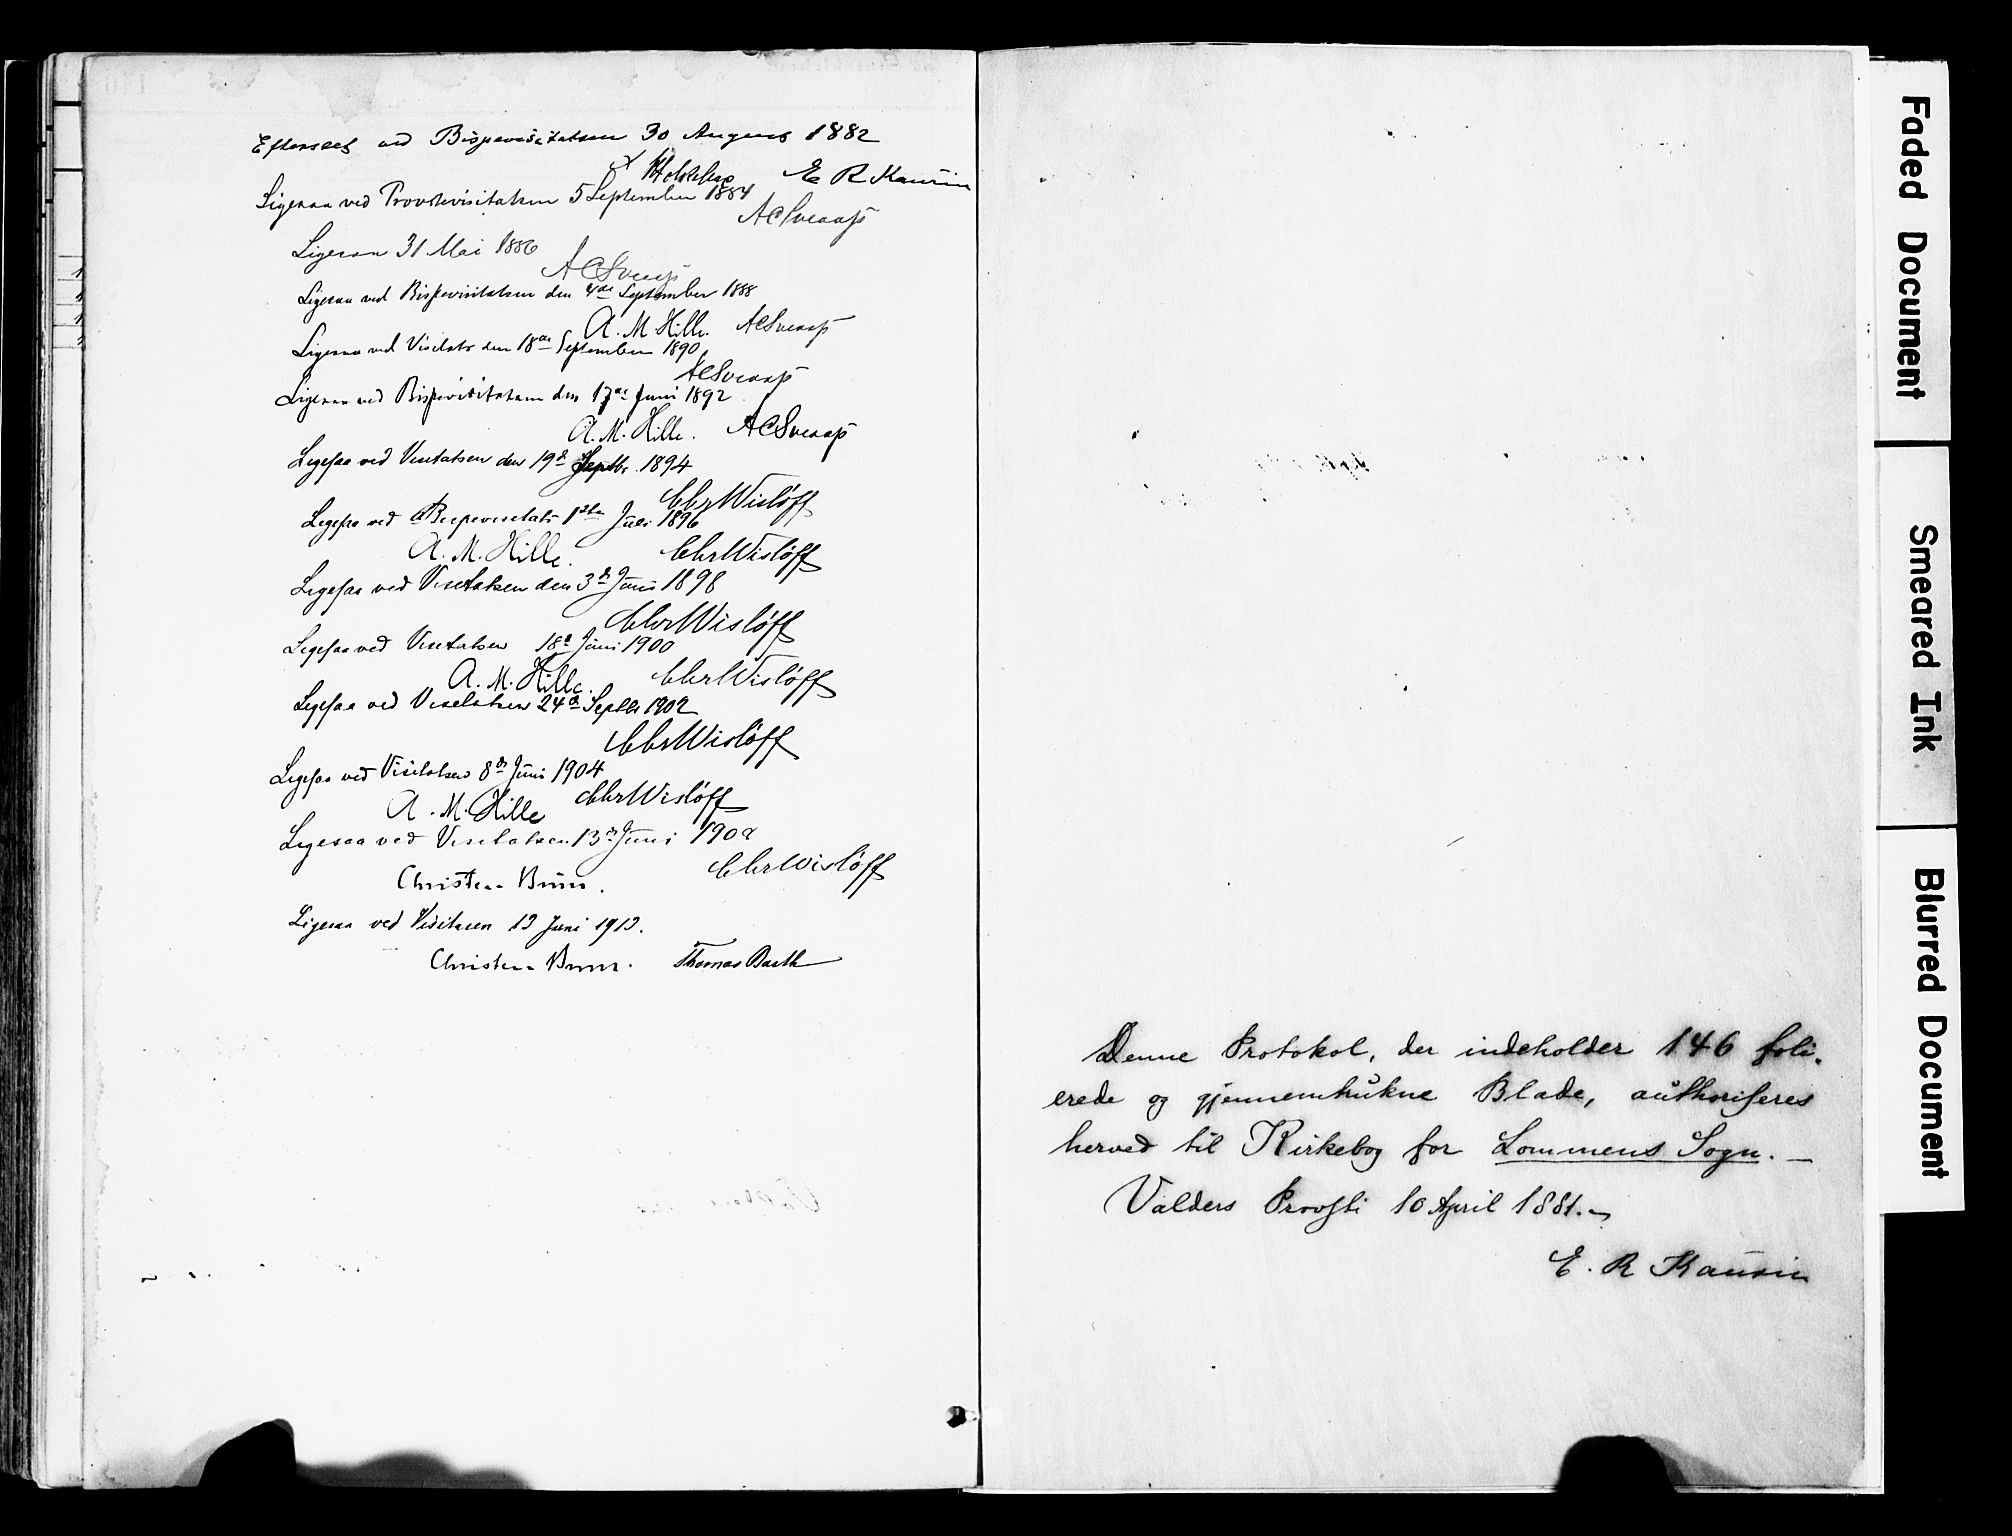 Efterseet ved Bispevisitatsen 30 August 1882
E R Kaurin
Ligesaa ved Provstevisitatsen 5 September 1884
A C Sveaass
Ligesaa 31 Mai 1886
A C Sveaass
Ligesaa ved Bispevisitatsen den 4de September 1888
A. M. Hille. A C Sveaass
Ligesaa ved Visitats den 18de September 1890
A C Sveaass
Ligesaa ved Bispevisitatsen den 17de Juni 1892
A. M. Hille. A C Sveaass
Ligesaa ved Visitatsen den 19d Septbr. 1894
Chr Wisløff
Ligesaa ved Bispevisitats 1ste Juli 1896
A. M. Hille. Chr Wisløff
Ligesaa ved Visitatsen den 3d Juni 1898
Chr Wisløff
Ligesaa ved Visitatsen 18d Juni 1900
A. M. Hille. Chr Wisløff
Ligesaa ved Visitatsen 24d Septbr 1902
Chr Wisløff
Ligesaa ved Visitatsen 8d Juni 1904
A. M. Hille Chr Wisløff
Ligesaa ved Visitatsen 13d Juni
Chr Wisløff
Christen Brun.
Ligesaa ved Visitasen 13 Juni 1913.
Christen Brun. Thomas Barth
Denne Protokol, der indeholder 146 foli-
erede og gjennemtrukne Blade, authoriseres
herved til Kirkebog for Lommens Sogn. —
Valders Provsti 10 April 1881. —
E. R Kaurin
Faded Document
Smeared Ink
Blurred Document